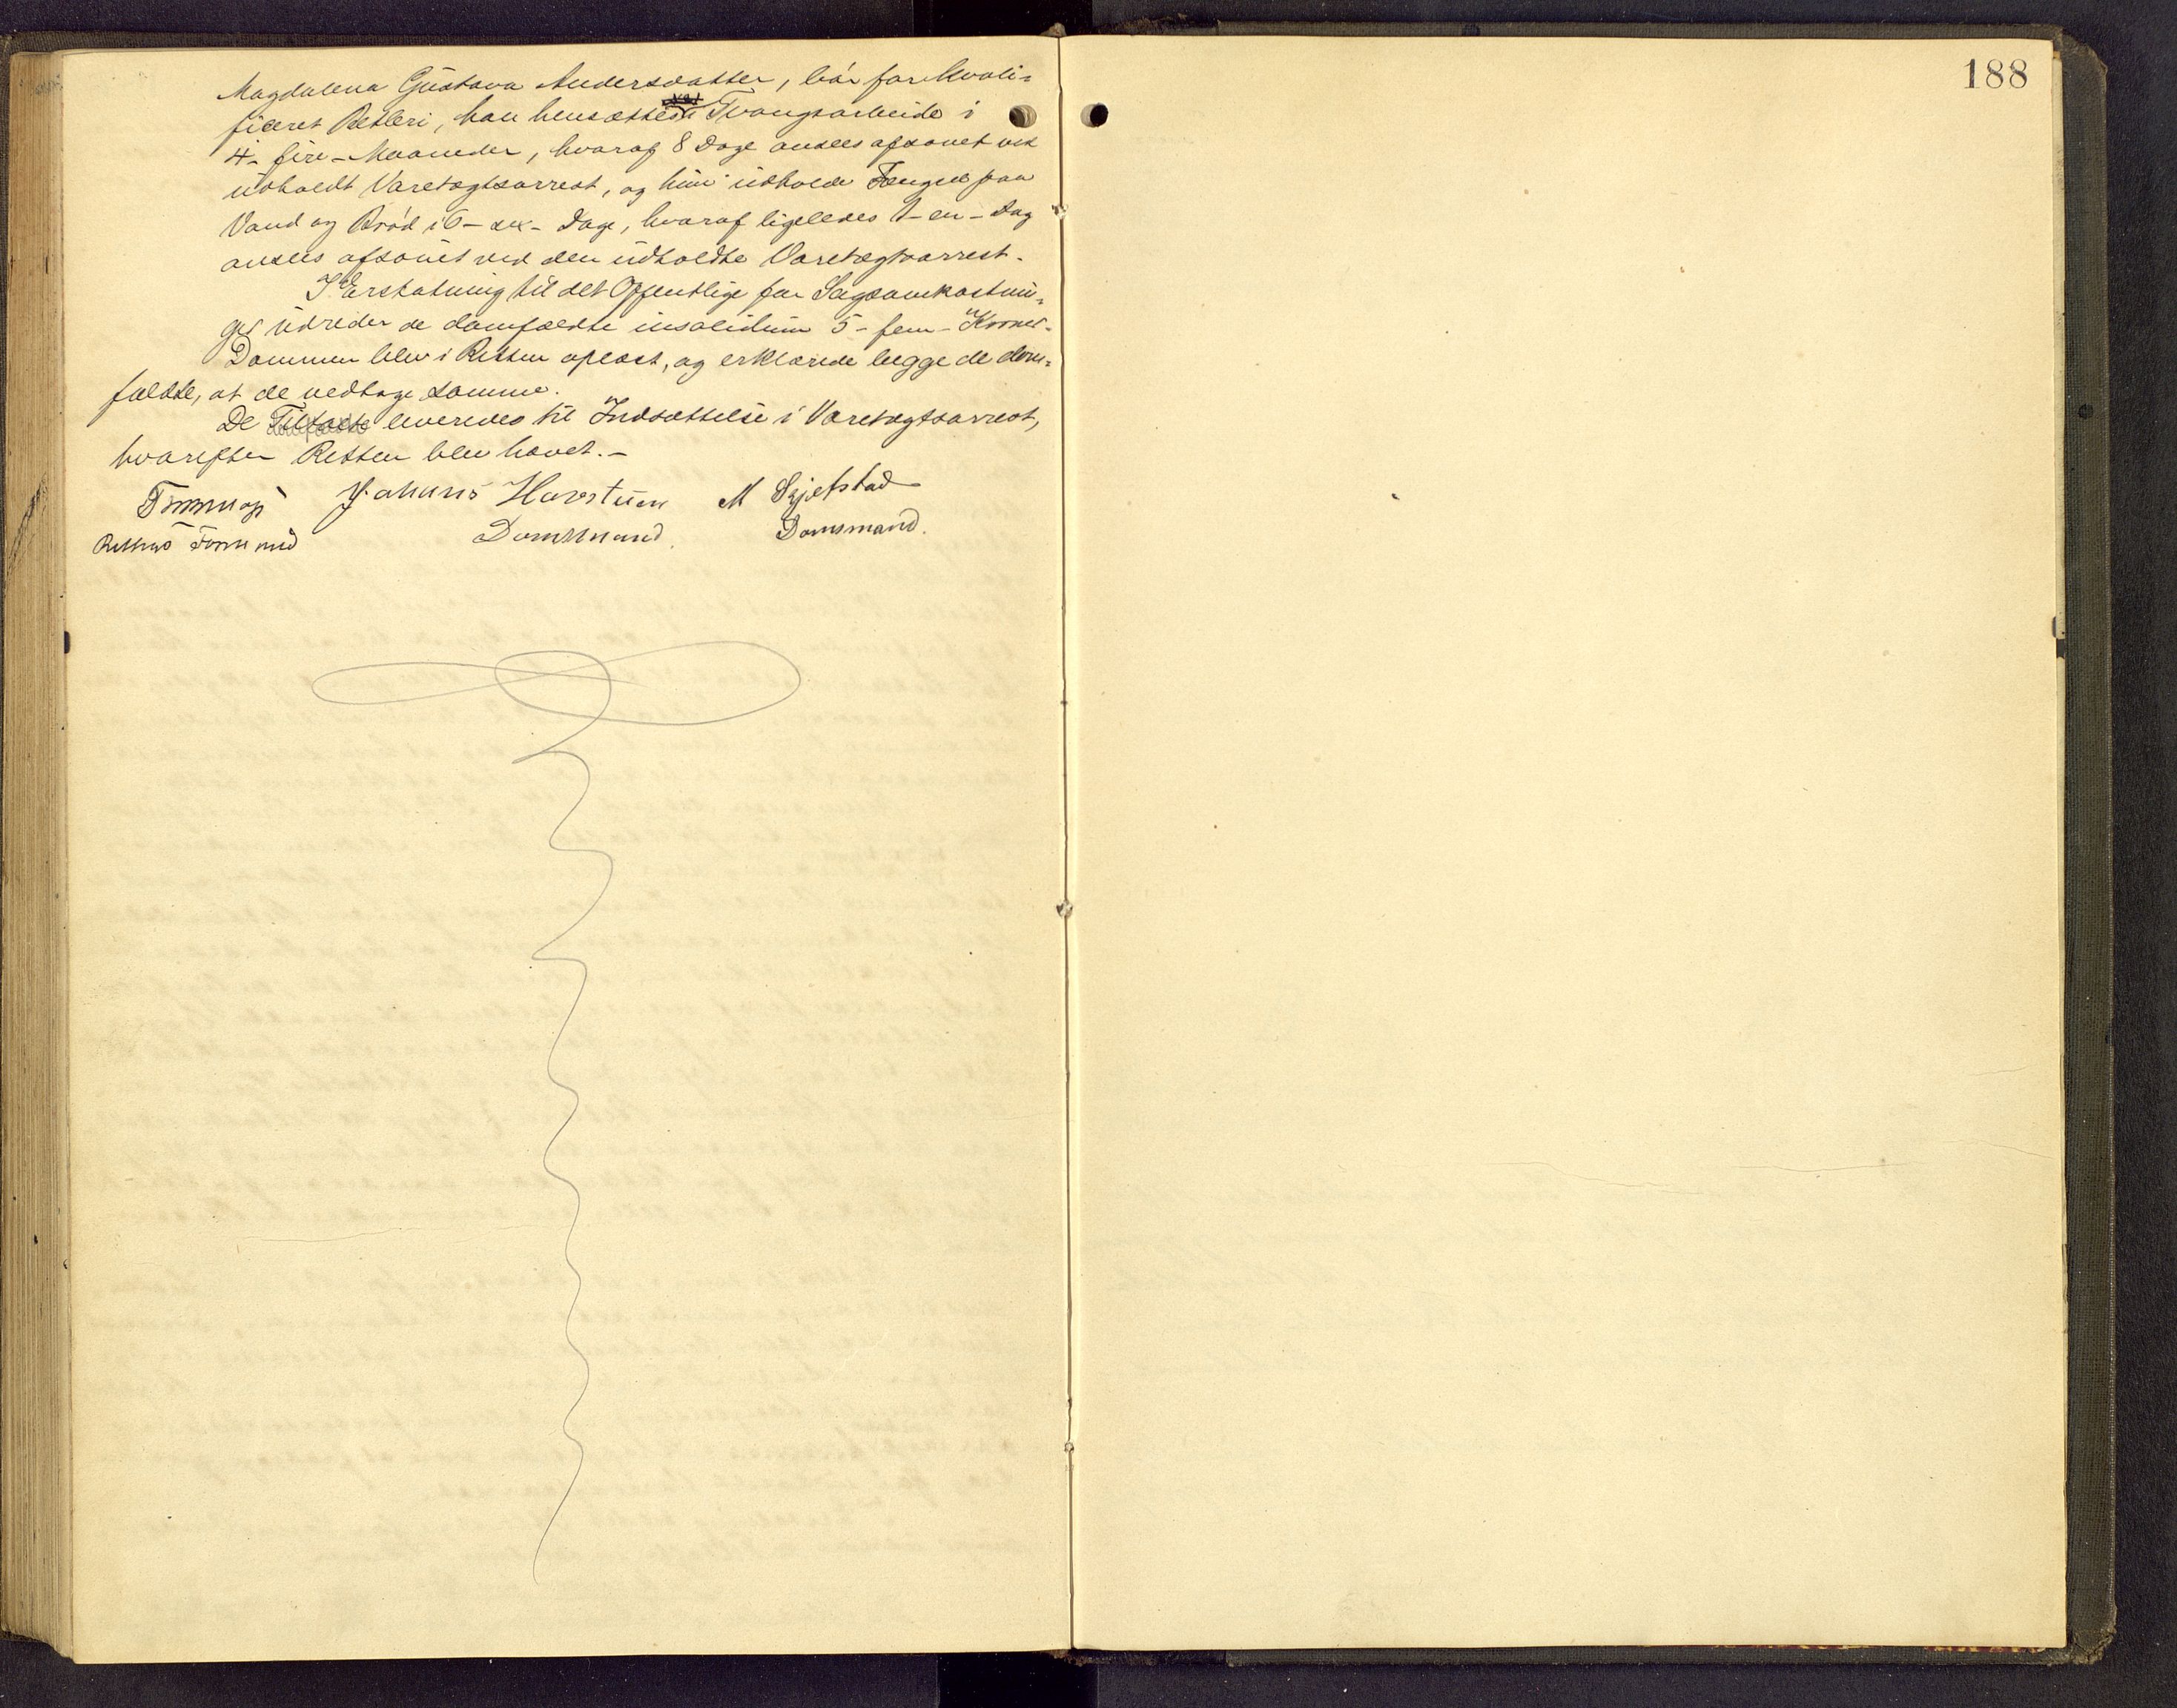 Magdalena Gustava Andersdatter, bør for kvali=
ficeret Betleri, han hensættes til Tvangsarbeide i
4 - fire - Maaneder, hvoraf 8 Dage ansees afsonet ved
udholdt Varetægtsarrest, og hun udholde Fængsel paa
Vand og Brød i 6 - sex - Dage, hvoraf ligeledes 1 - en - Dag
ansees afsonet ved den udholdte Varetægtsarrest.
I Erstatning til det Offentlige for Sagsomkostnin=
ger udreder de domfældte insolidum 5 - fem - Kroner.
Dommen blev i Retten oplæst, og erklærede begge de dom=
fældte, at de vedtage samme.
De domfældte leveredes til Indsættelse i Varetægtsarrest,
hvorefter Retten blev hævet. -
Johans Havstuen M Gjetstad
Rettens Formand Domsmand. Domsmand.
188